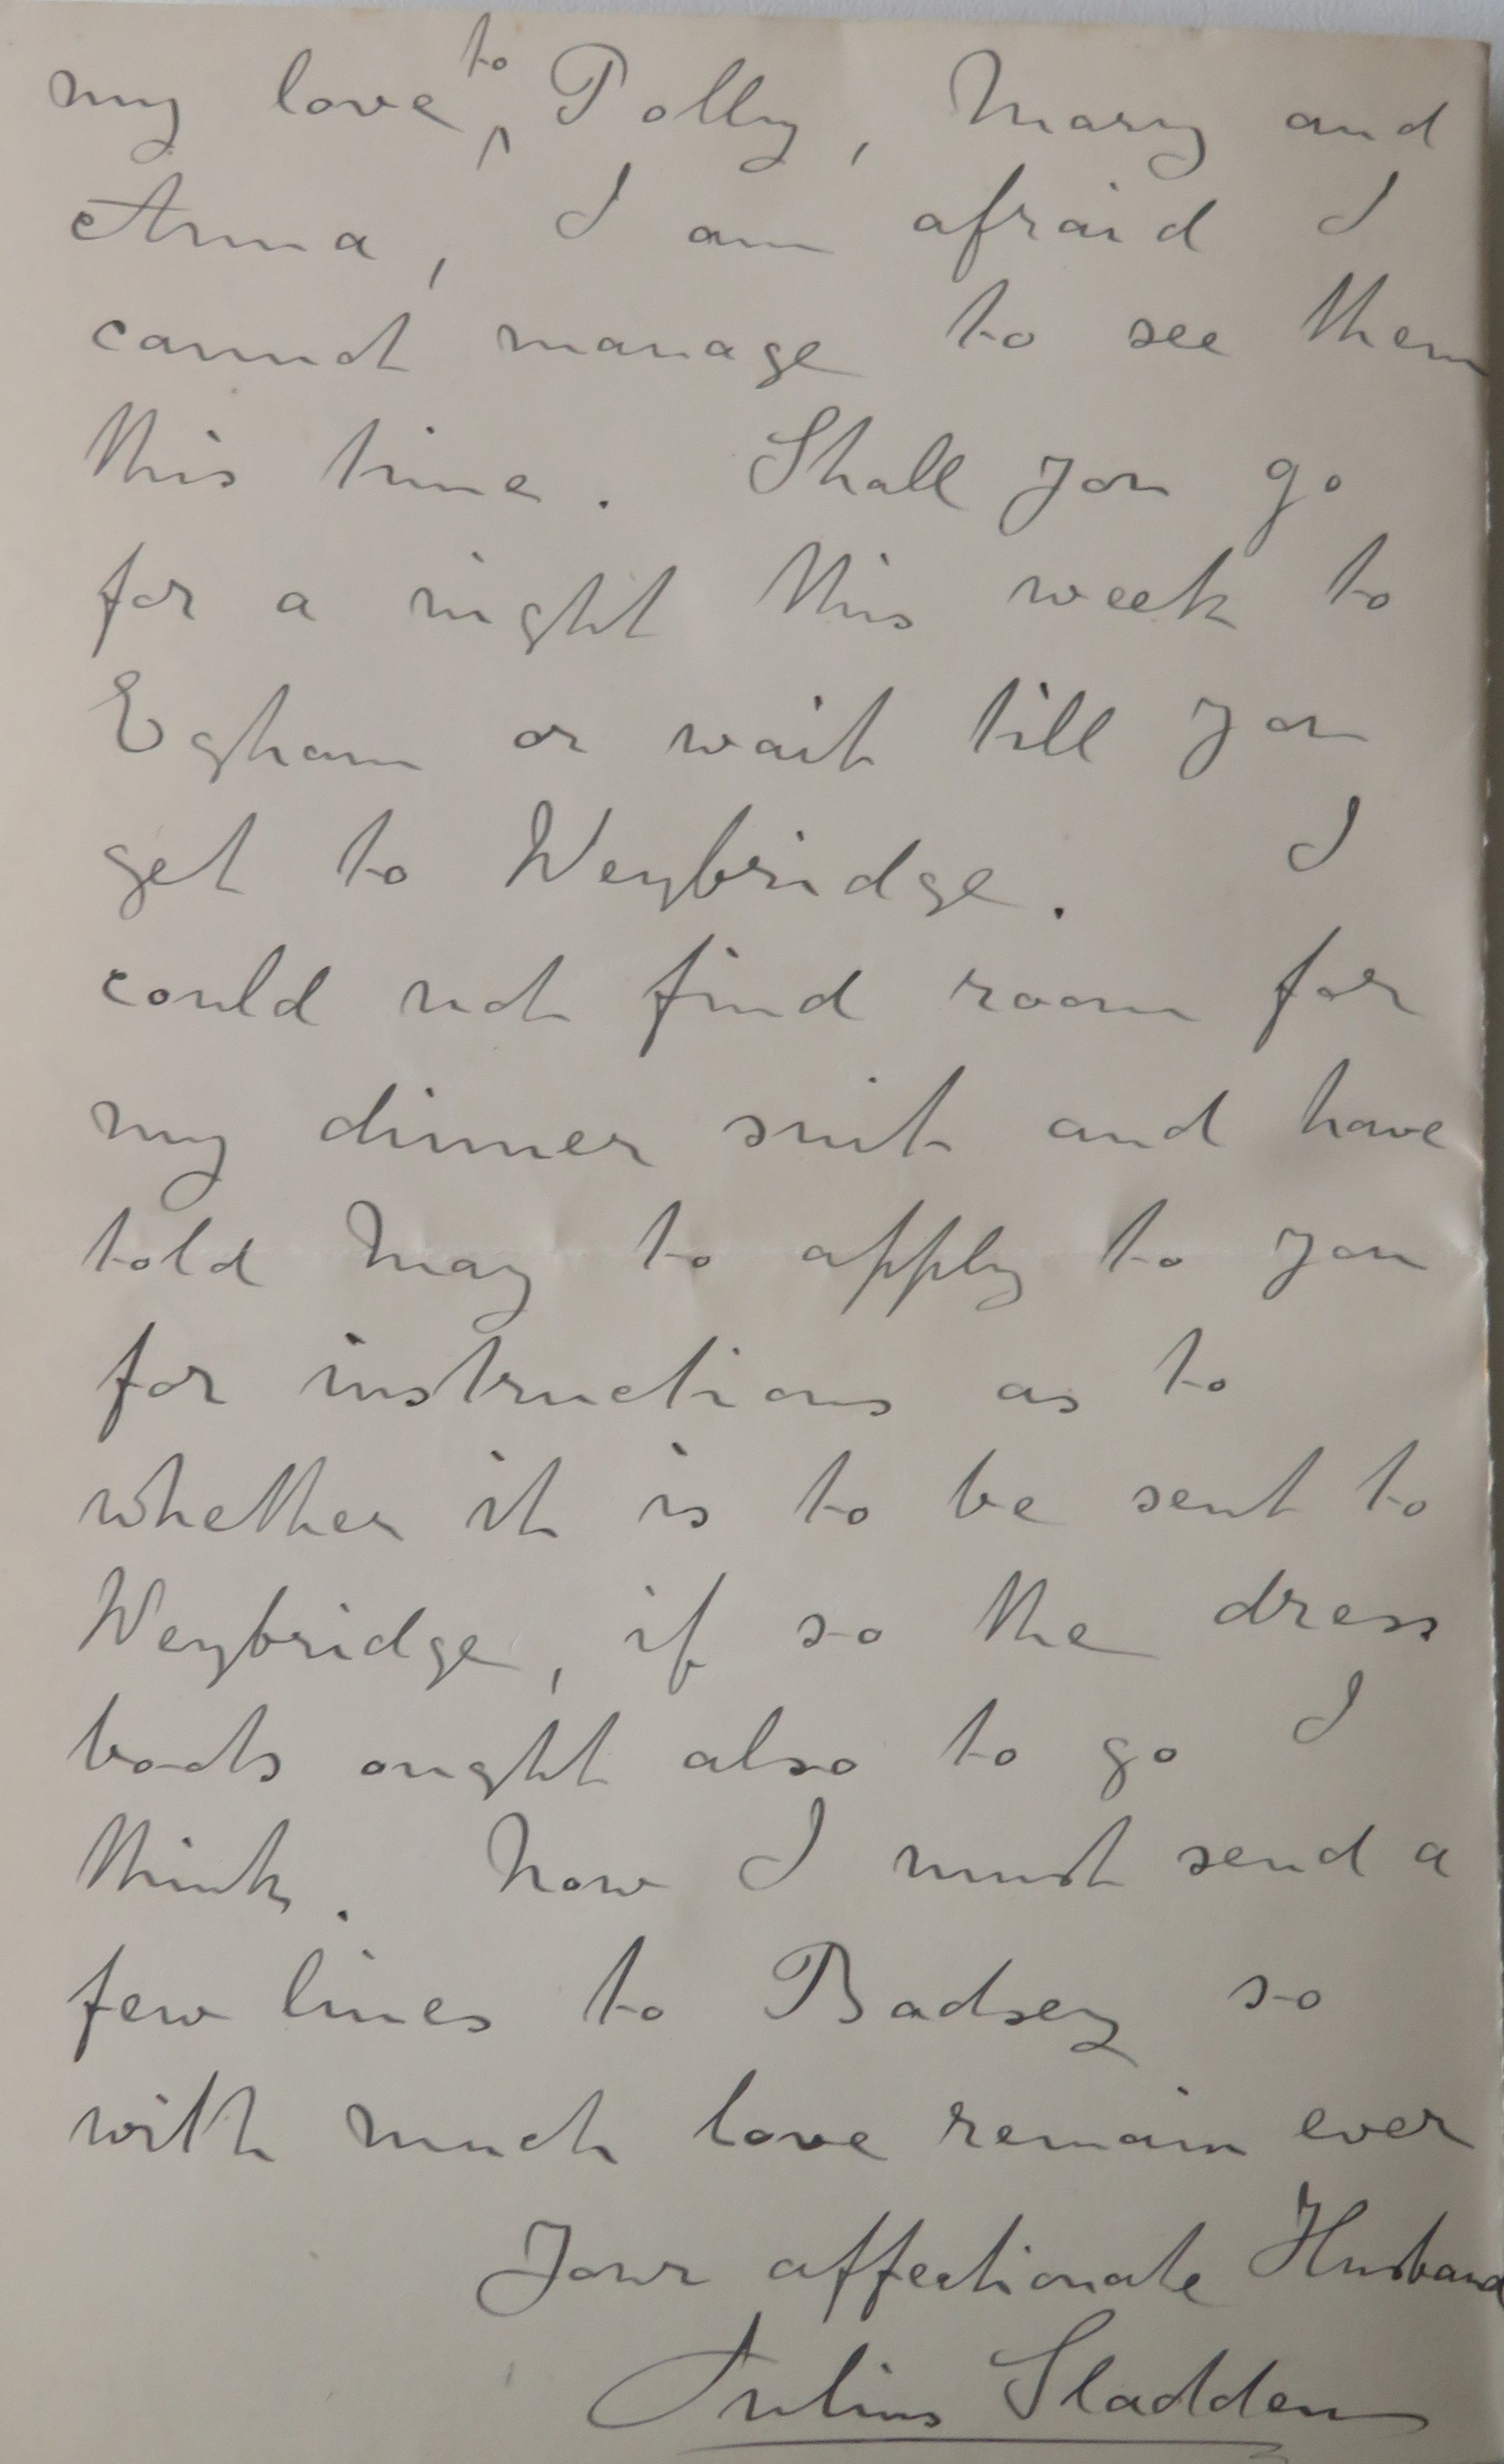 my love to Polly, Mary and
Anna, I am afraid I
cannot manage to see them
this time. Shall you go
for a night this week to
Egham or wait till you
get to Weybridge. I
could not find room for
my dinner suit and have
told May to apply to you
for instructions as to
whether it is to be sent to
Weybridge, if so the dress
boots ought also to go I
think. Now I must send a
few lines to Badsey so
with much love remain ever
Your affectionate Husband
Julius Sladden